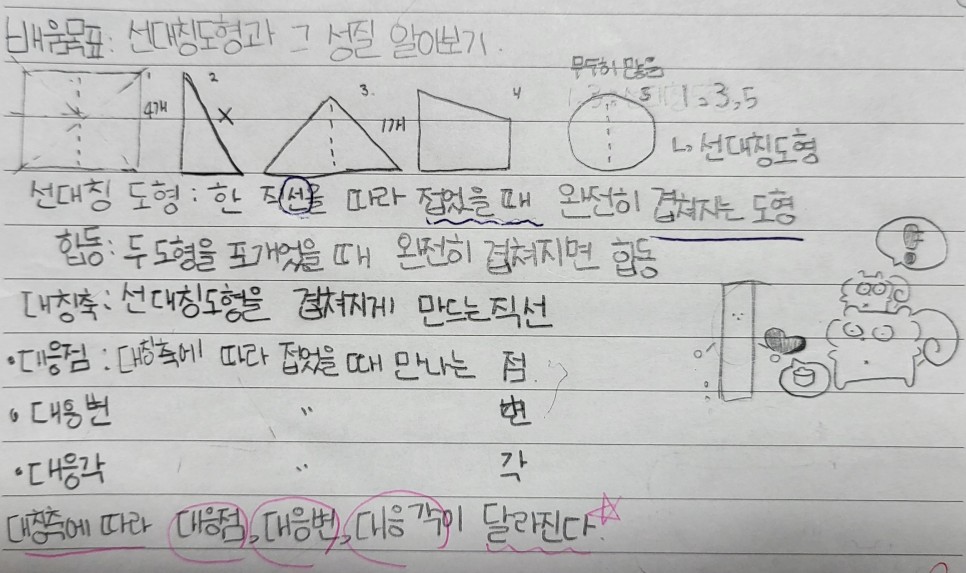 배움목표: 선대칭도형과 그 성질 알아보기.
무수히 많음
1 4개 2 X 3. 1개 4 5 1, 3, 5
↳ 선대칭도형
선대칭 도형: 한 직선을 따라 접었을 때 완전히 겹쳐지는 도형
합동: 두 도형을 포개었을 때 완전히 겹쳐지면 합동
대칭축: 선대칭도형을 겹쳐지게 만드는 직선
•대응점: 대칭축에 따라 접었을 때 만나는 점.
•대응변 〃 변
•대응각 〃 각
대칭축에 따라 대응점, 대응변, 대응각이 달라진다. ☆